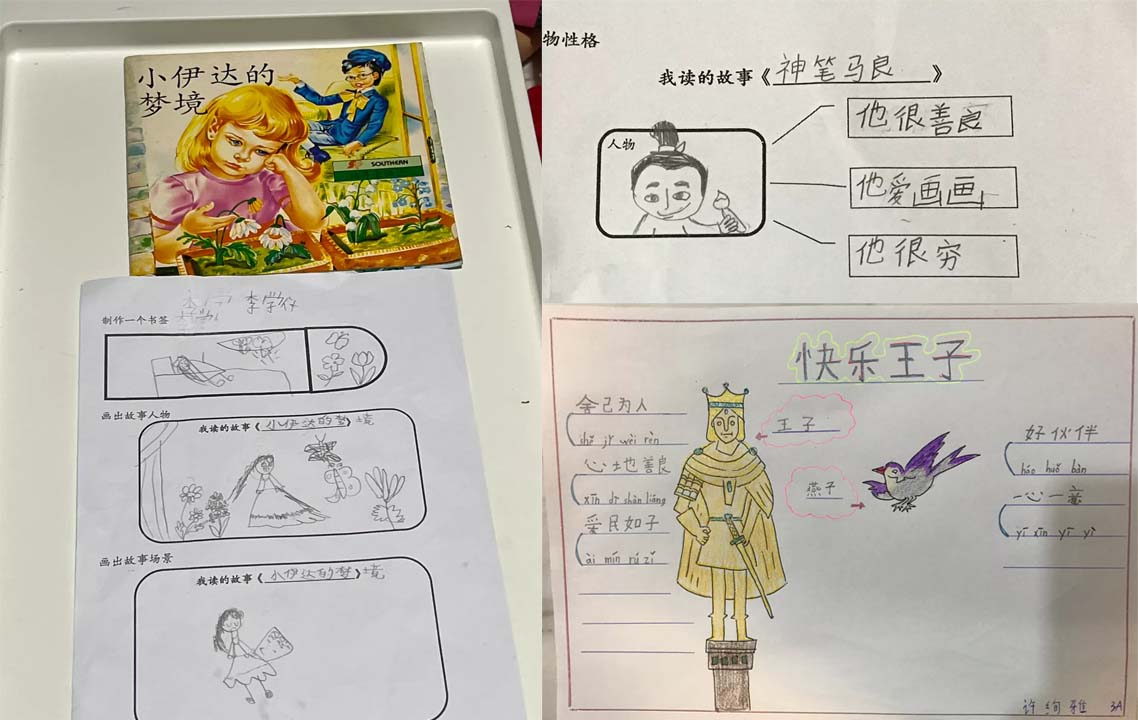 小伊达的
梦境
SOUTHERN
李学
制作一个书签
画出故事人物
我读的故事《小伊达的梦》境
画出故事场景
我读的故事《小伊达的梦》境
物性格
我读的故事《神笔马良》
人物
他很善良
他爱画画
他很穷
快乐王子
舍己为人
shě jǐ wèi rén
心地善良
xīn dì shàn liáng
爱民如子
ài mín rú zǐ
王子
燕子
好伙伴
hǎo huǒ bàn
一心一意
yī xīn yī yì
许绚雅 3A